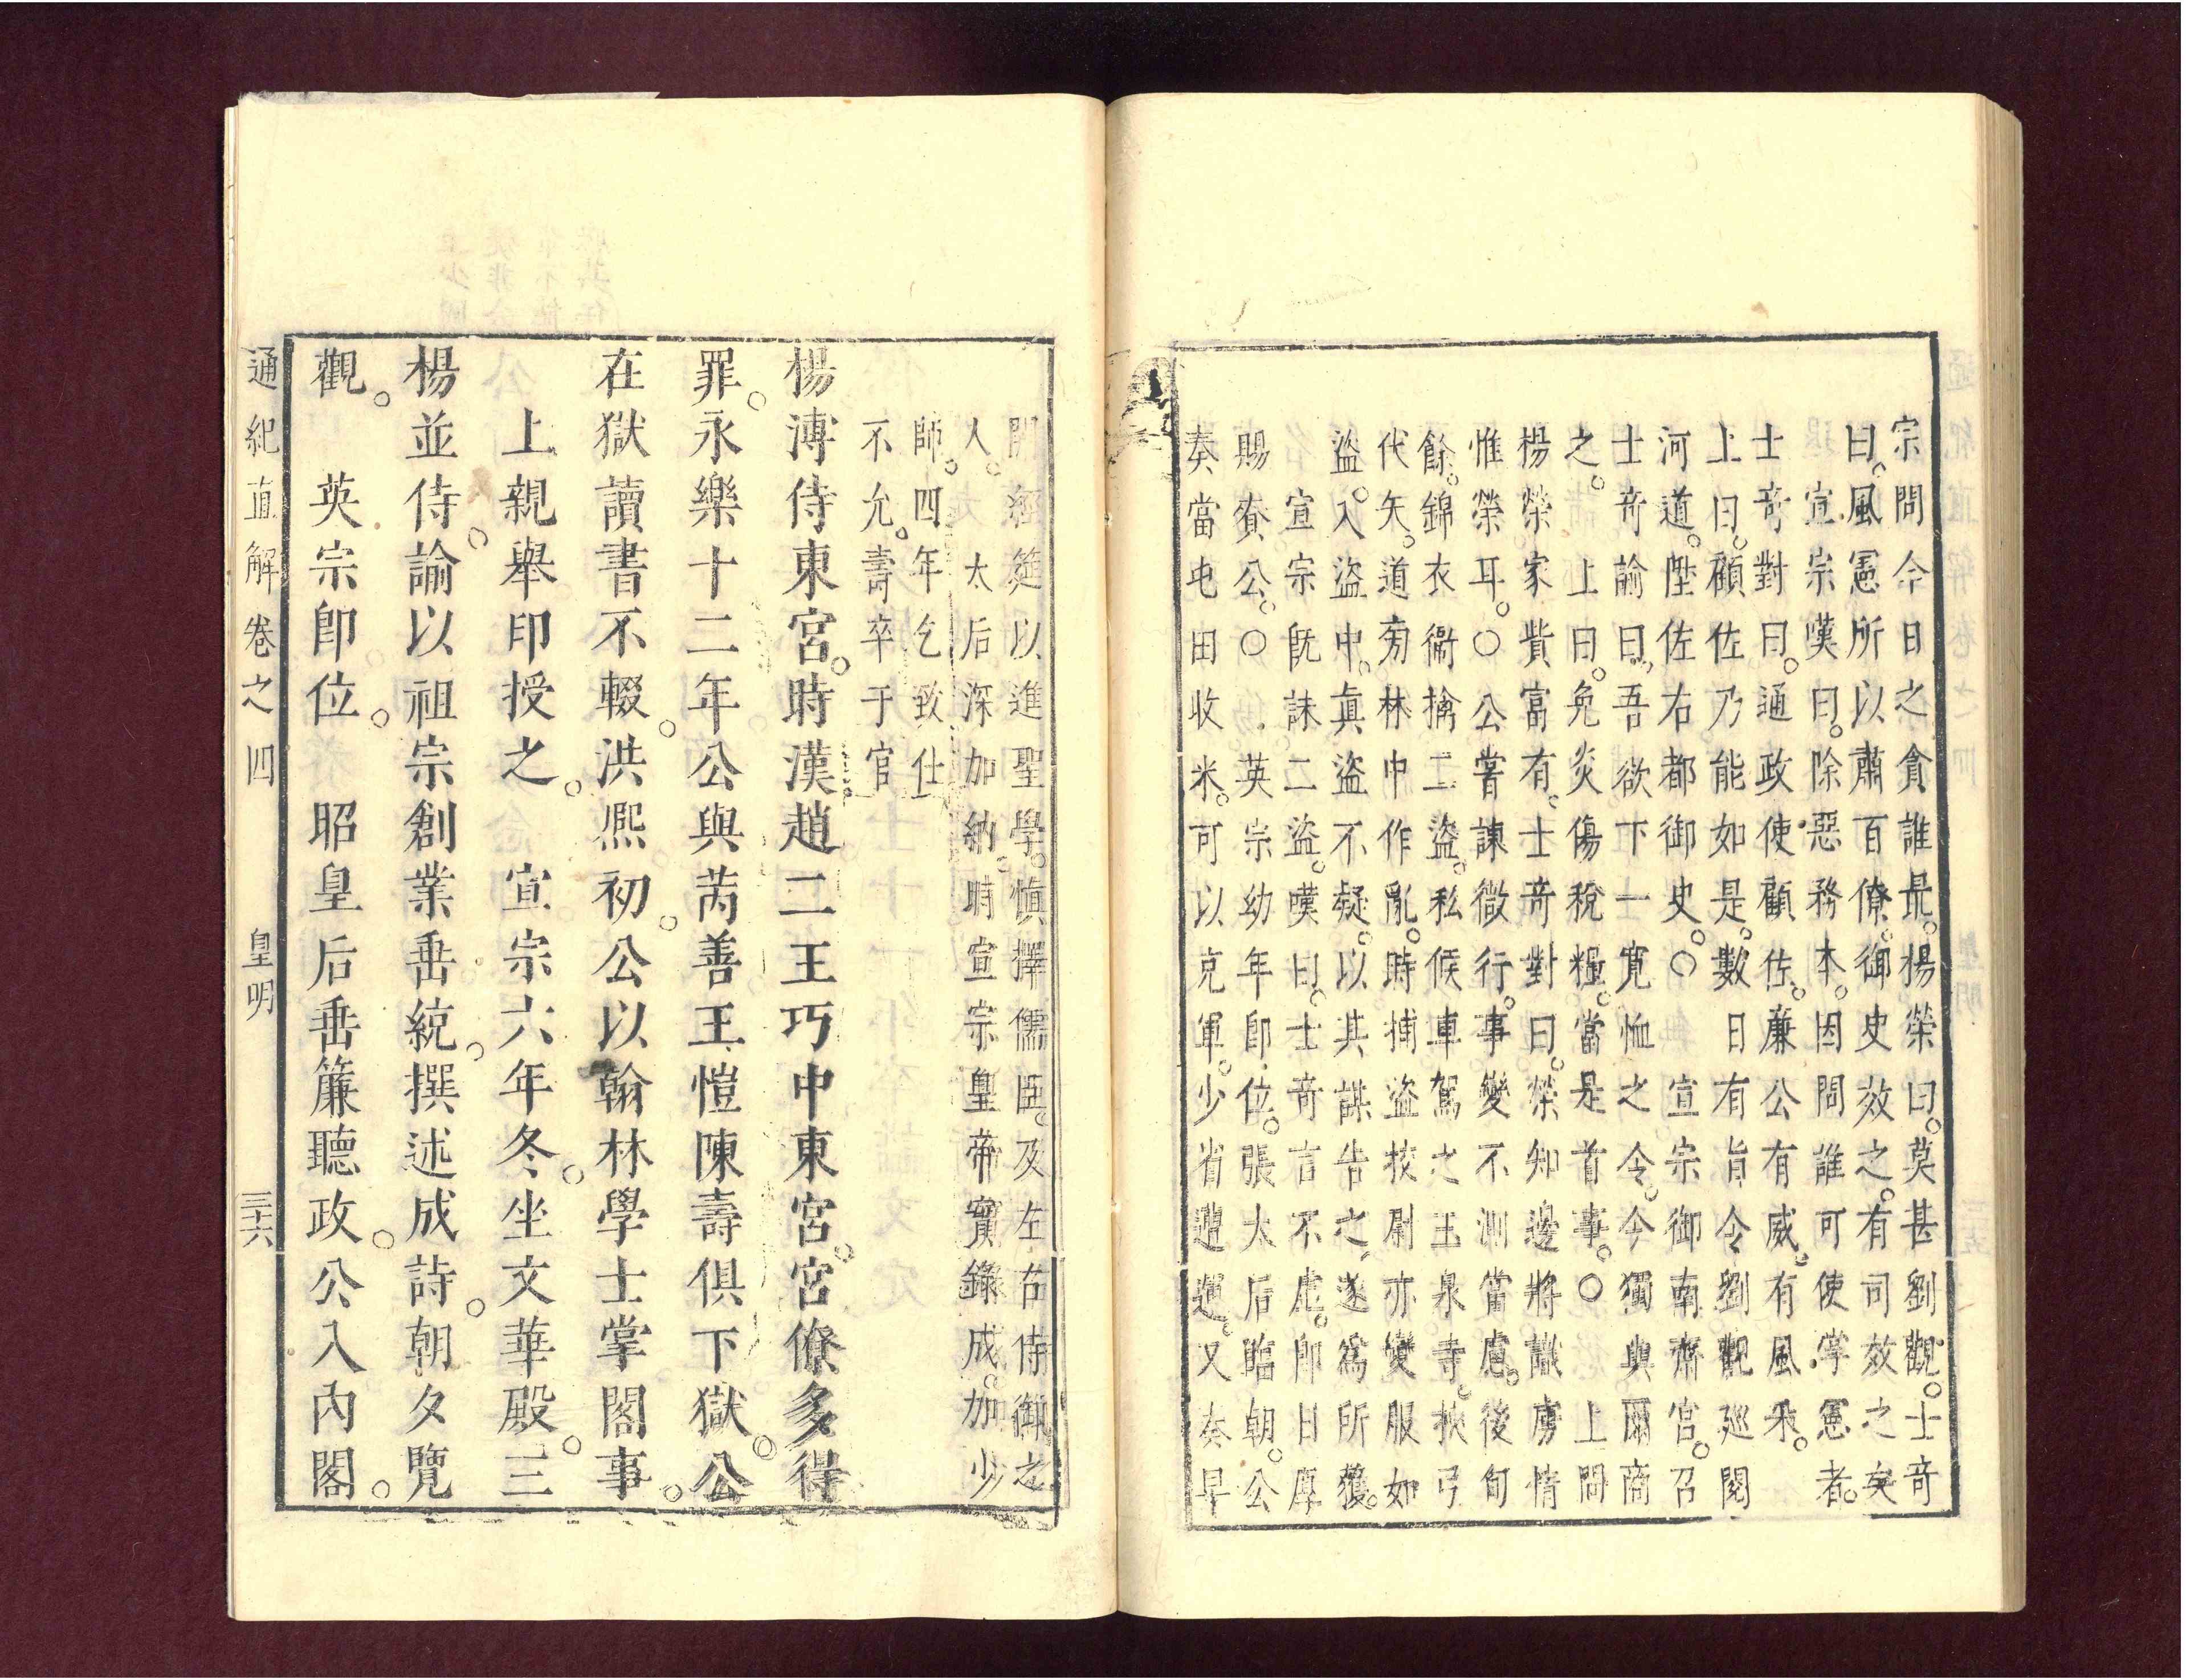 宗問今日之貪誰最楊榮曰莫甚劉觀士竒
曰風憲所以肅百僚御史效之有司效之矣
宣宗嘆曰除惡務本因問誰可使掌憲者
士竒對曰通政使顧佐廉公有威有風采
上曰顧佐乃能如是數日有旨令劉觀廵閱
河道陞佐右都御史○宣宗御南齋宮召
士竒諭曰吾欲下一寛恤之令今獨與爾商
之上曰免炎傷稅糧當是首事○上問
楊榮家貲富有士竒對曰榮知邊將識虜情
惟榮耳○公嘗諫微行事變不測當慮後旬
餘錦衣衞擒二盜私候車駕之玉泉寺挾弓
代矢道旁林中作亂時捕盜校尉亦變服如
盜入盜中眞盜不疑以其謀告之遂爲所獲
宣宗旣誅二盜嘆曰士竒言不虗卽日厚
賜賚公○英宗幼年卽位張太后臨朝公
奏當屯田收米可以克軍少省遭運又奏早
開經筵以進聖學愼擇儒臣及左右侍御之
人太后深加納時宣宗皇帝實錄成加少
師四年乞致仕
不允壽卒于官
楊溥侍東宮時漢趙二王巧中東宮宮僚多得
罪永樂十二年公與芮善王愷陳壽俱下獄公
在獄讀書不輟洪熈初公以翰林學士掌閣事
上親舉印授之宣宗六年冬坐文華殿三
楊並侍諭以祖宗創業垂統撰述成詩朝夕覽
觀英宗卽位昭皇后垂簾聽政公入內閣
通紀直解卷之四 皇明 三十六